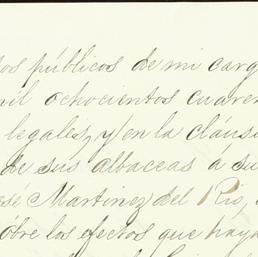 os públicos de mi carg
mil ochocientos cuaren
legales, y en la cláusu
de sus albaceas á su
osé Martinez del Rio,
sobre los efectos que haya